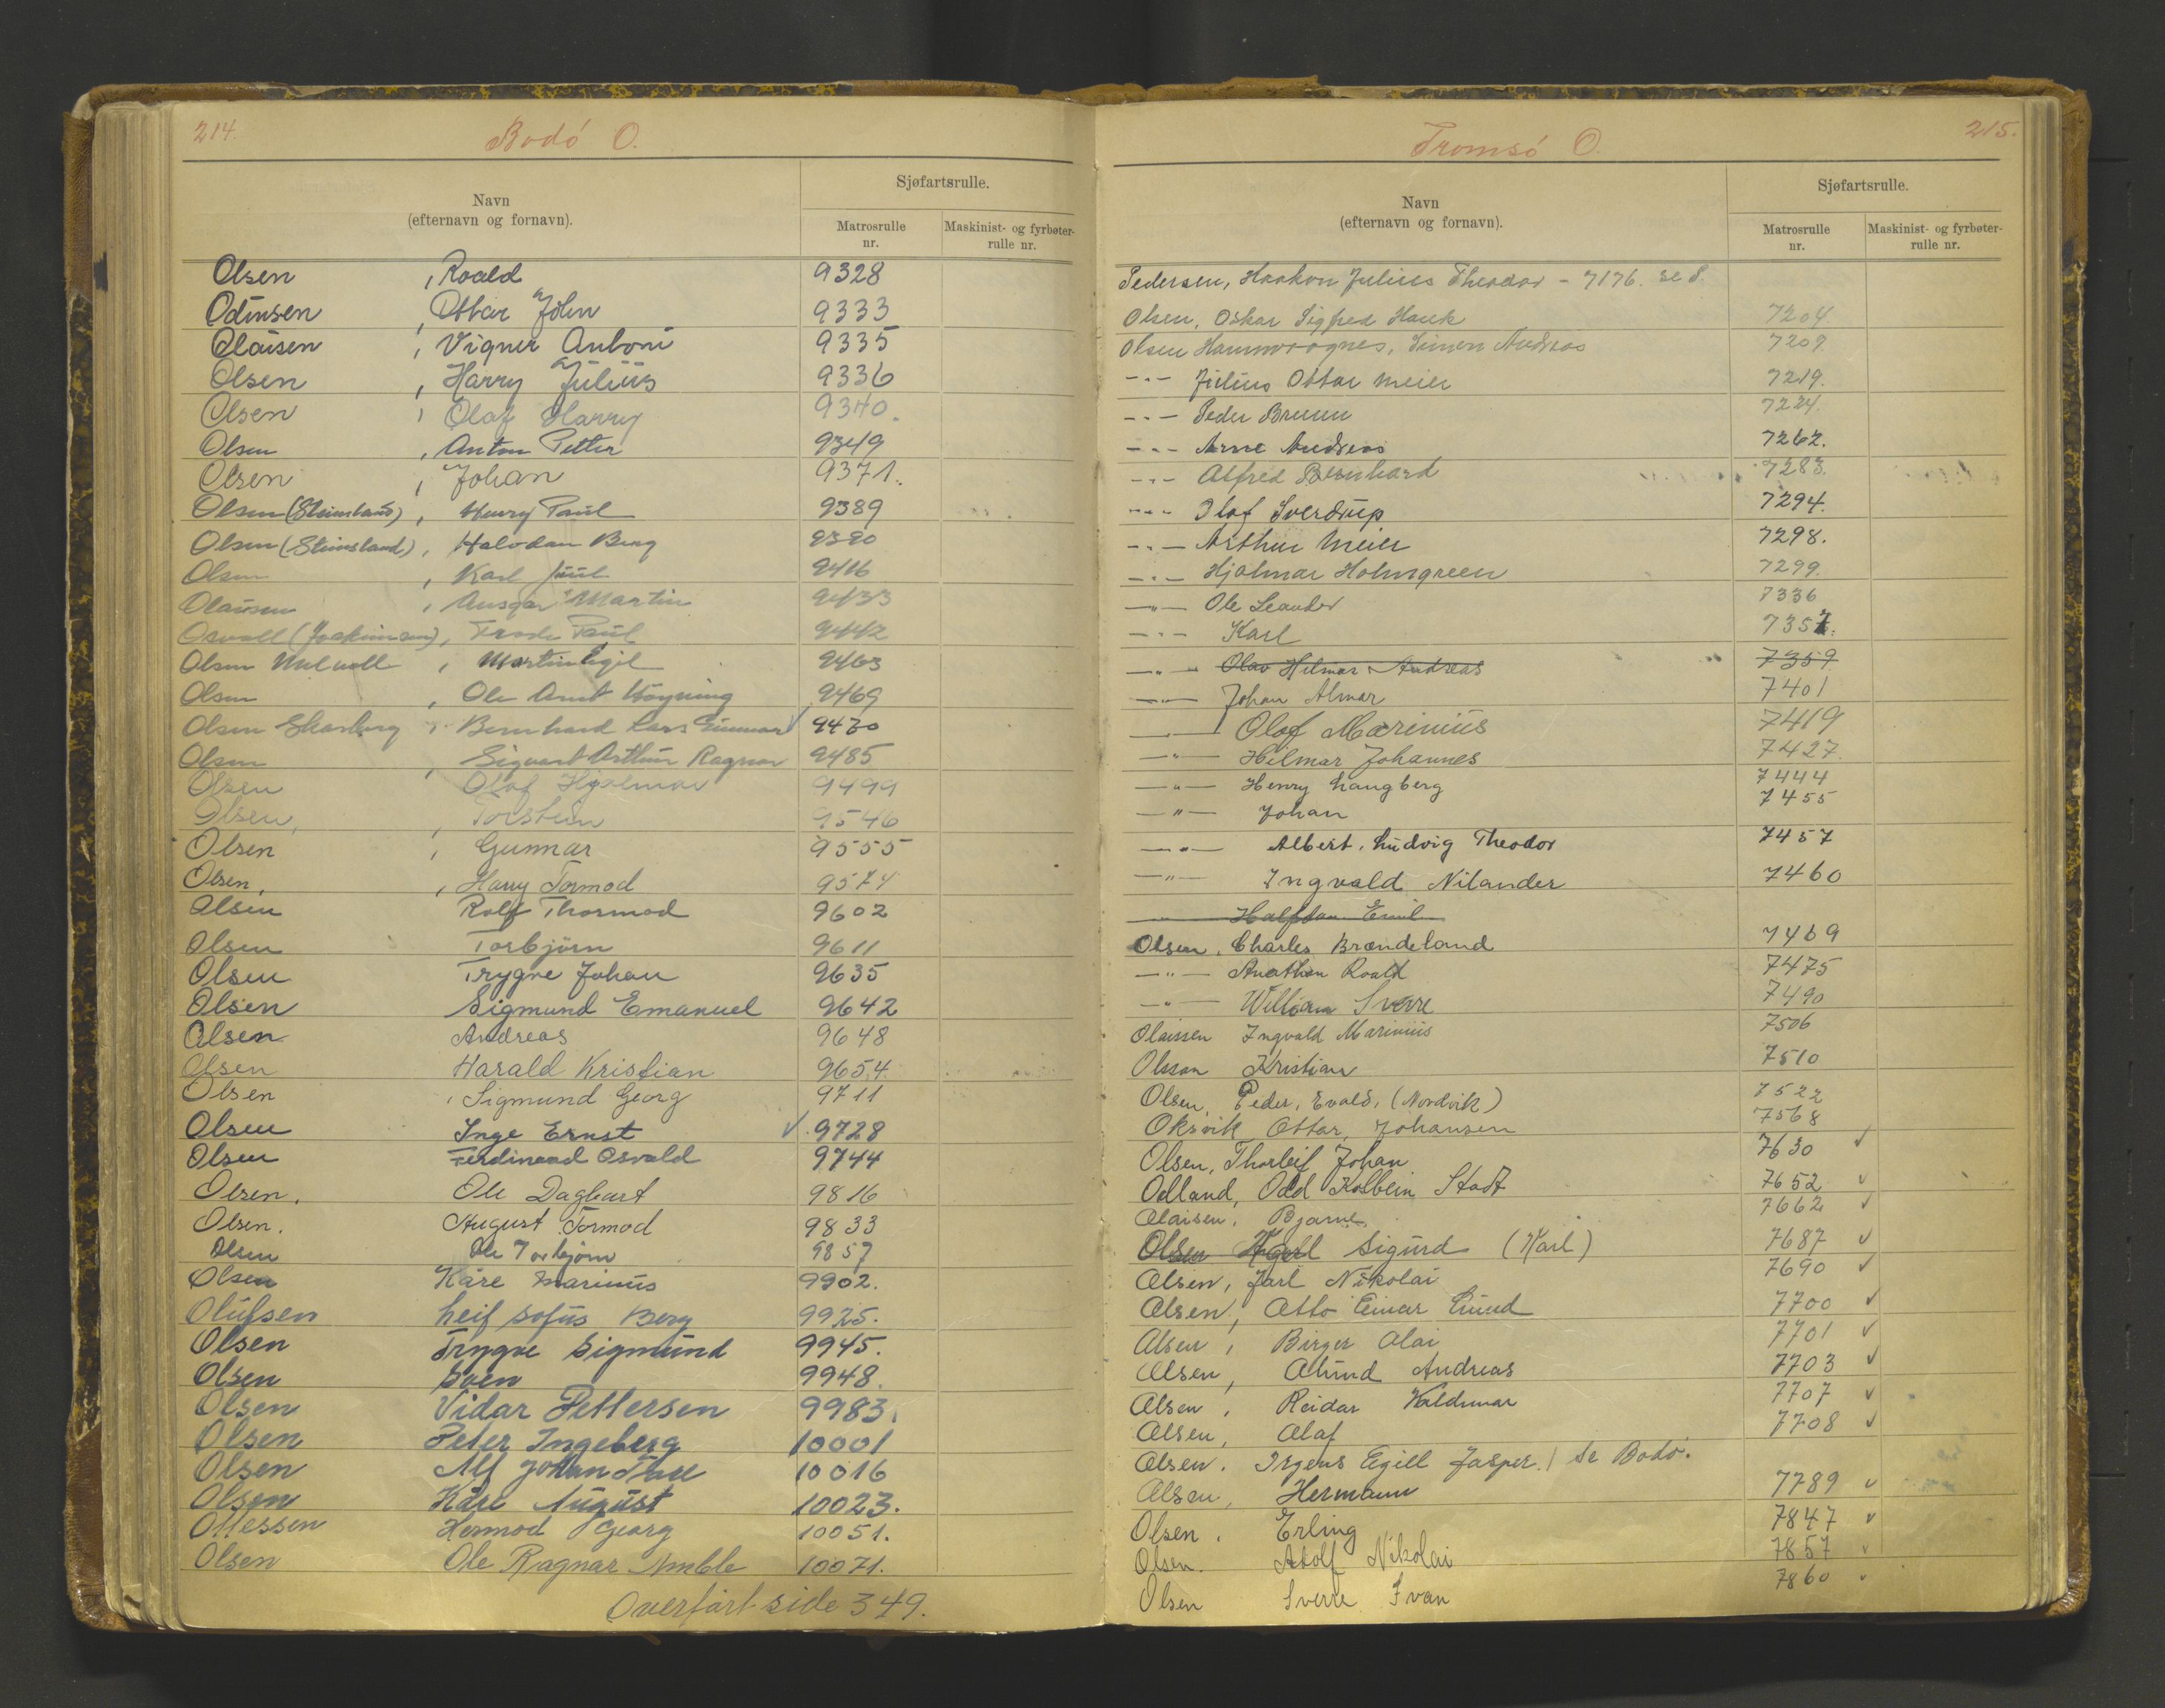 214.
Bodó O.
Navn
(efternavn og fornavn).
Sjøfartsrulle.
Matrosrulle
nr.
Maskinist- og fyrbøter-
rulle nr.
Olsen , Roald 9328
Odinsen , Ottar John 9333
Olaisen , Vigner Antoni 9335
Olsen , Harry Julius 9336
Olsen , Olaf Harry 9340.
Olsen , Anton Petter 9349
Olsen , Johan 9371.
Olsen (Steinsland) , Henry Paul 9389
Olsen (Steinsland) , Halvdan Berg 9390
Olsen , Karl Juul 9416
Olaisen , Ansgar Martin 9433
Osvoll (Joakimsen), Frode Paul 9442
Olsen , Martin Egil 9463
Olsen , Ole Arnt 9469
Olsen , Bernhard Lars Gunnar 9470
Olsen , Sigvart Arthur Ragnar 9485
Olsen Olaf Hjalmar 9499
Olsen, , Torstein 9546
Olsen , Gunnar 9555
Olsen, , Harry Tormod 9574
Olsen Rolf Thormod 9602
Olsen Torbjörn 9611
Olsen Trygve Johan 9635
Olsen Sigmund Emanuel 9642
Olsen Andreas 9648
Olsen Harald Kristian 9654
Olsen , Sigmund Georg 9711
Olsen Inge Ernst 9728
Olsen Ferdinand Osvald 9744
Olsen. Ole Dagbart 9816
Olsen. August Tormod 9833
Olsen Ole Torbjörn 9857
Olsen Kåre Marinus 9902.
Olufsen Leif Sofus Berg 9925.
Olsen Trygve Sigmund 9945.
Olsen Sven 9948.
Olsen Vidar Pettersen 9983.
Olsen Peter Ingeberg 10001
Olsen Alf Johan 10016
Olsen Kåre August 10023.
Ottessen Hermod Georg 10051.
Olsen Ole Ragnar Amble 10071.
Overført side 349.
215.
Tromsó O.
Navn
(efternavn og fornavn).
Sjøfartsrulle.
Matrosrulle
nr.
Maskinist- og fyrbøter-
rulle nr.
Pedersen, Haakon Julius Theodor - 7176. se P.
Olsen, Oskar Sigfred Hauk 7204.
Olsen , Simon Andreas 7209.
-"- Julius Ottar Meier 7219.
-"- Peder Bruun 7224.
-"- Arne Andreas 7262.
-"- Alfred Bernhard 7283.
-"- Olaf Sverdrup 7294.
-"- Arthur Meier 7298.
-"- Hjalmar Holmgreen 7299.
-"- Ole Leander 7336
-"- Karl 7357.
-"- Olav Hilmar Andreas 7359
-"- Johan Almar 7401
-"- Olaf Marinius 7419
-"- Hilmar Johannes 7427.
-"- Henry Langberg 7444
-"- Johan 7455
-"- Albert Ludvig Theodor 7457
-"- Ingvald Nilander 7460
-"- Halfdan Emil
Olsen, Charles Brændeland 7469
-"- Anathon Roald 7475
-"- William Sverre 7490
Olaissen Ingvald Marinius 7506
Olsson Kristian 7510
Olsen, Peder, Evald, (Nordvik) 7522
Oksvik Ottar Johansen 7568
Olsen, Thorleif Johan 7630
Odland, Odd Kolbein Stadt 7652
Olaisen, Bjarne 7662
Olsen Sigurd (Karl) 7687
Olsen, Jarl Nikolai 7690
Olsen, Otto Einar 7700
Olsen, Birger Olai 7701
Olsen, Ølund Andreas 7703
Olsen, Reidar Valdemar 7707
Olsen, Olaf 7708
Olsen. Irgens Egill Jasper. Se Bodø.
Olsen, Hermann 7789
Olsen. Erling 7847
Olsen. Adolf Nikolai 7857
Olsen Sverre Ivan 7860